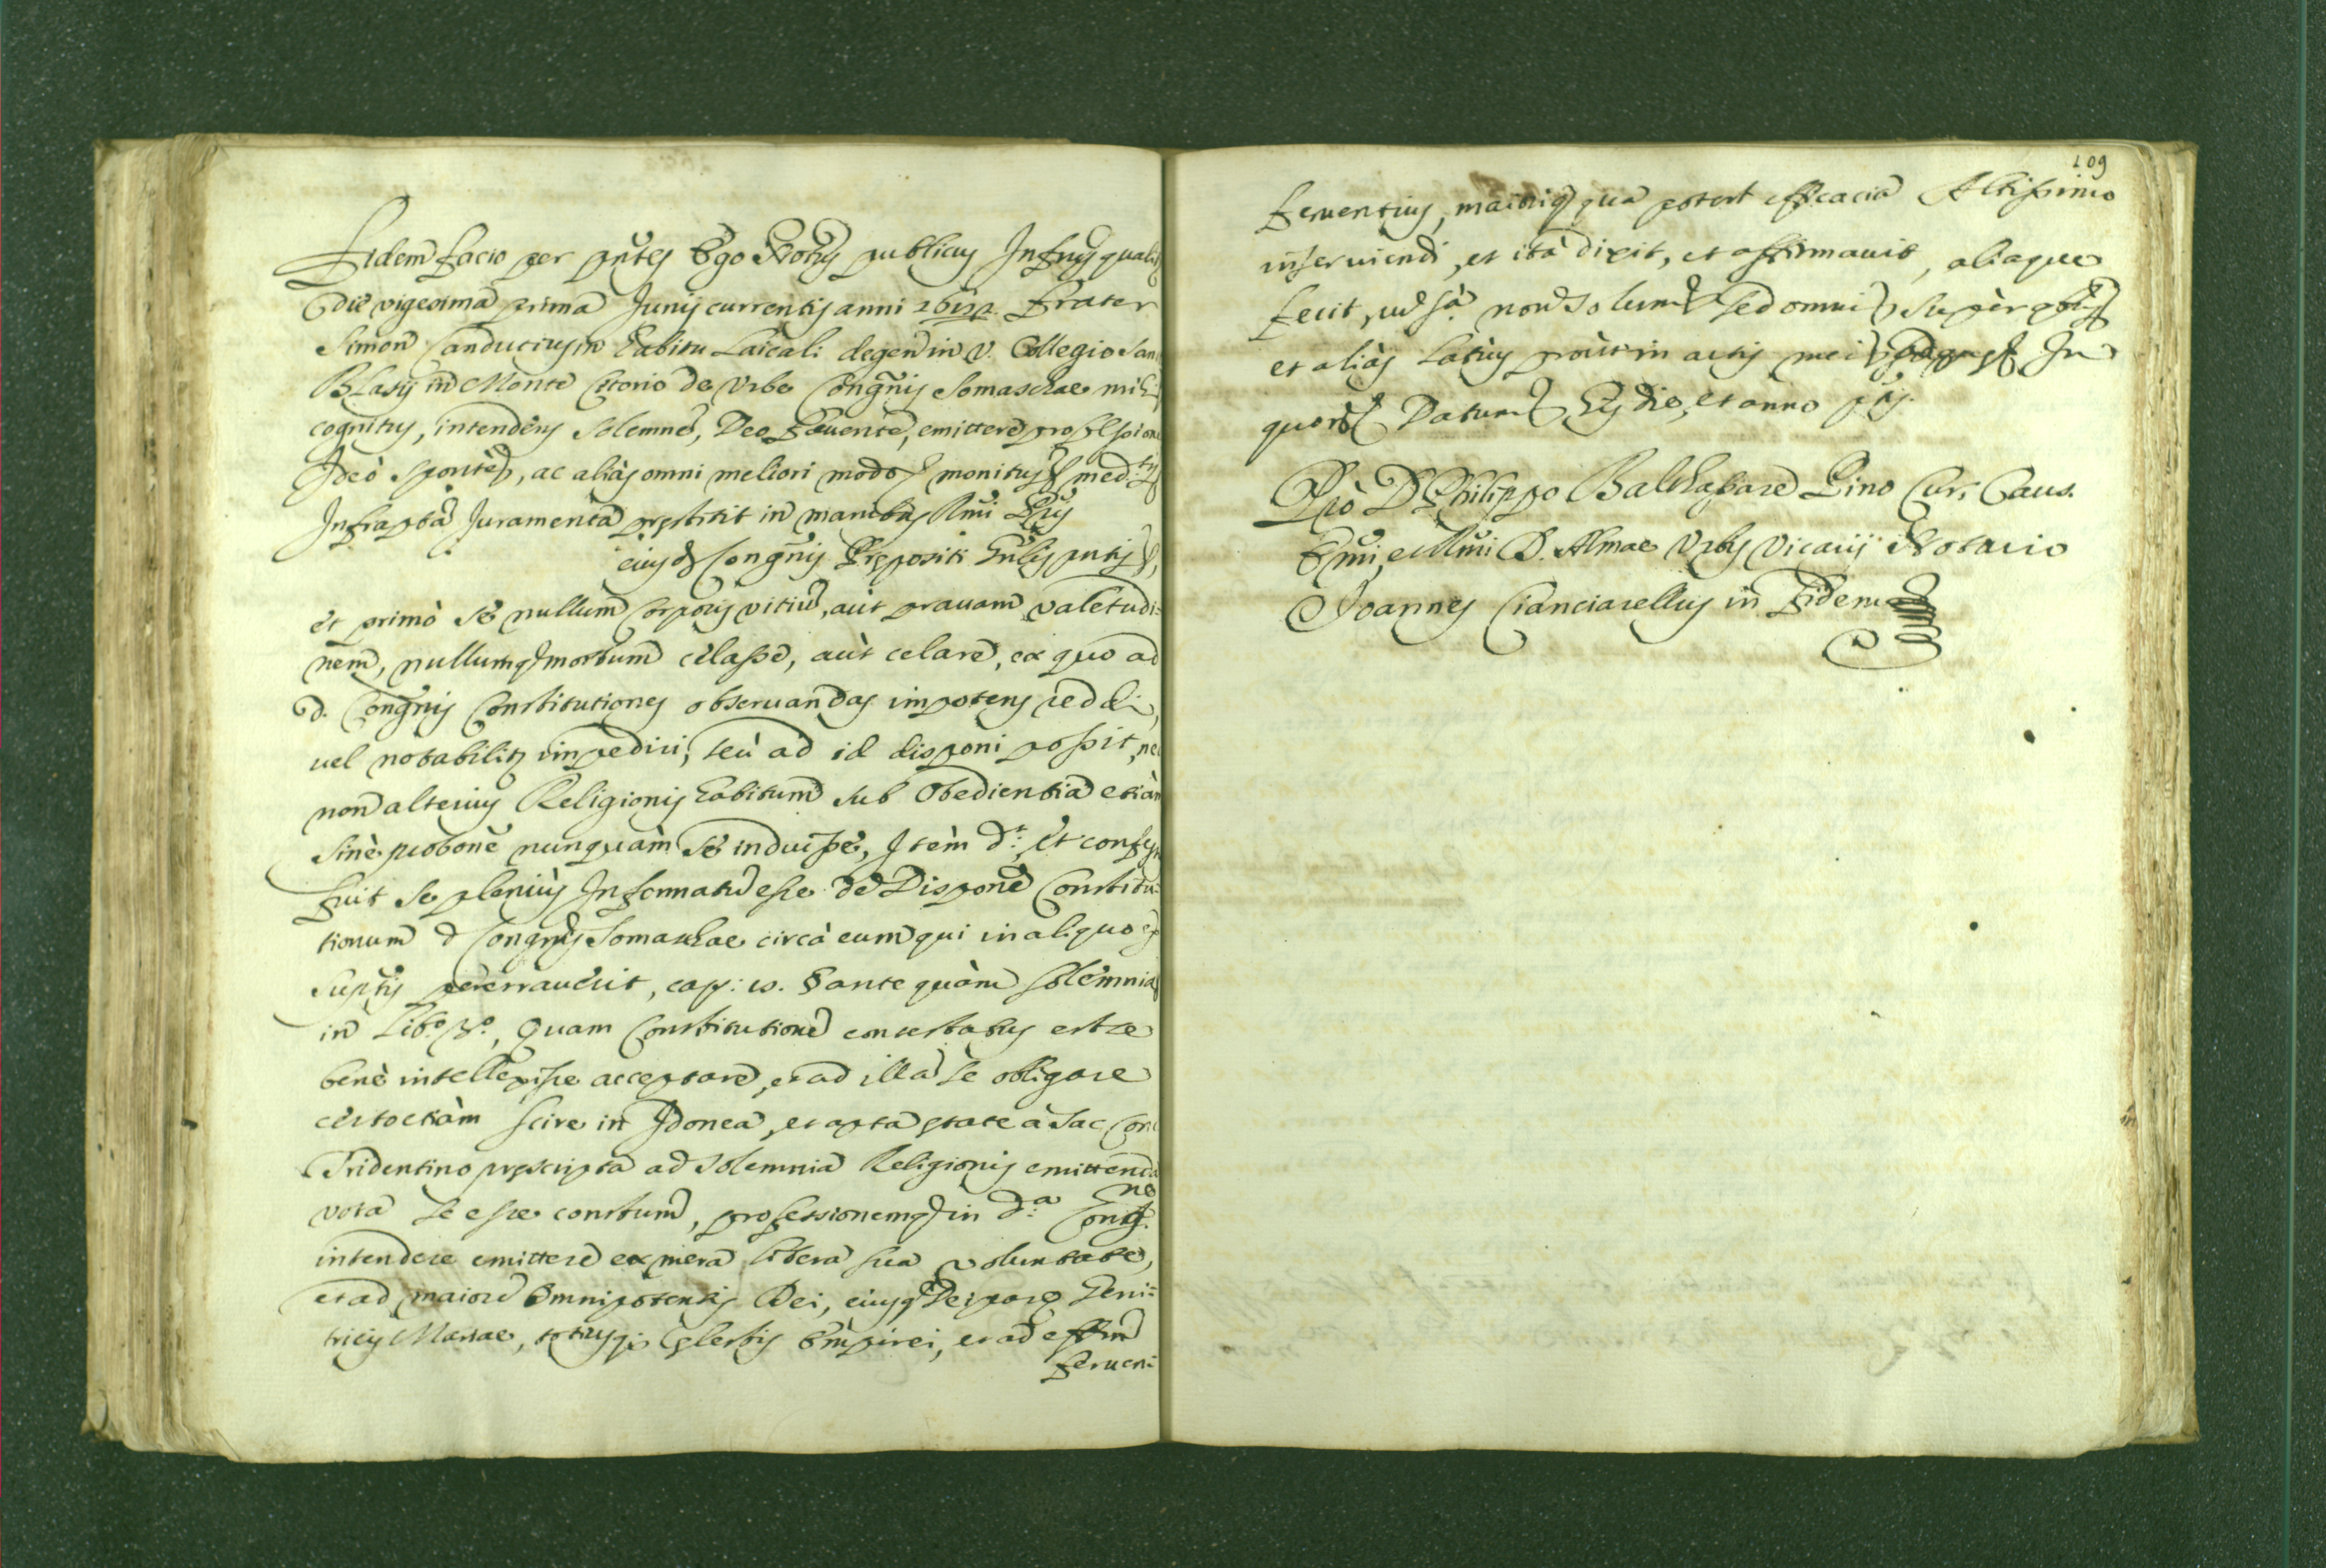 Fidem facio per pntes Ego Notus publicus Infrus qualr
die vigesima prima Junij currentis anni Frater
Simon Conducius in habitu Laicali degen in V. Collegio San
Blasij in Monte Citorio de Urbe Congnis Somaschae mihi
cognitus, intendens solemne, Deo favente, emittere professione
Ideò sponte, ac aliàs omni meliori modo monitus med
Infraptâ Juramenta prestitit in manibus Rmi Pris
eiusd Congnis Prepositi Gnlis pntis,
et primò se nullum corporis vitiu, aut pravam valetudi-
nem, nullumq morbum celasse, aut celare, ex quo ad
d. Congnis Constitutiones observandas impotens reddi,
vel notabilir impediri, seu ad id disponi possit, nec
non alterius Religionis habitum sub Obedientia etiàm
sinè probone nunquàm se induisse, Item d.t, et confes
fuit se pleniùs Informatu esse de Dispone Constitu-
tionum d Congnis Somaschae circà eum qui in aliquo ex
suptis erraverit, cap: Sante quàm solemnia
in Lib.o , Quam Constitutione contestatus est se
benè intellexisse acceptare, et ad illa se obligare
certo etiàm scire in Idonea, et apta etate à Sac Con
Tridentino prescripta ad solemnia Religionis emittenda
vota se esse constum, professionemq in d.a Cong.ne
intendere emittere ex mera libera sua voluntate,
et ad maiore Omnipotentis Dei, eiusq Deipare Geni-
tricis Mariae, totiusq; Celestis Empirei, et ad effm
ferven-
109
ferventius, maioriq qua poterit efficacia Altissimo
inserviendi, et ità dixit, et affirmavit, aliaque
fecit, non solum sed omni super
et aliàs latius proùt in actis mei In
quor Datum hys die, et anno ptis.
Prò D Philippo Balthasare Pino Cur. Caus.
Emi, et Rmi D. Almae Urbis Vicarij Notario
Joannes Cianciarellus in fidem